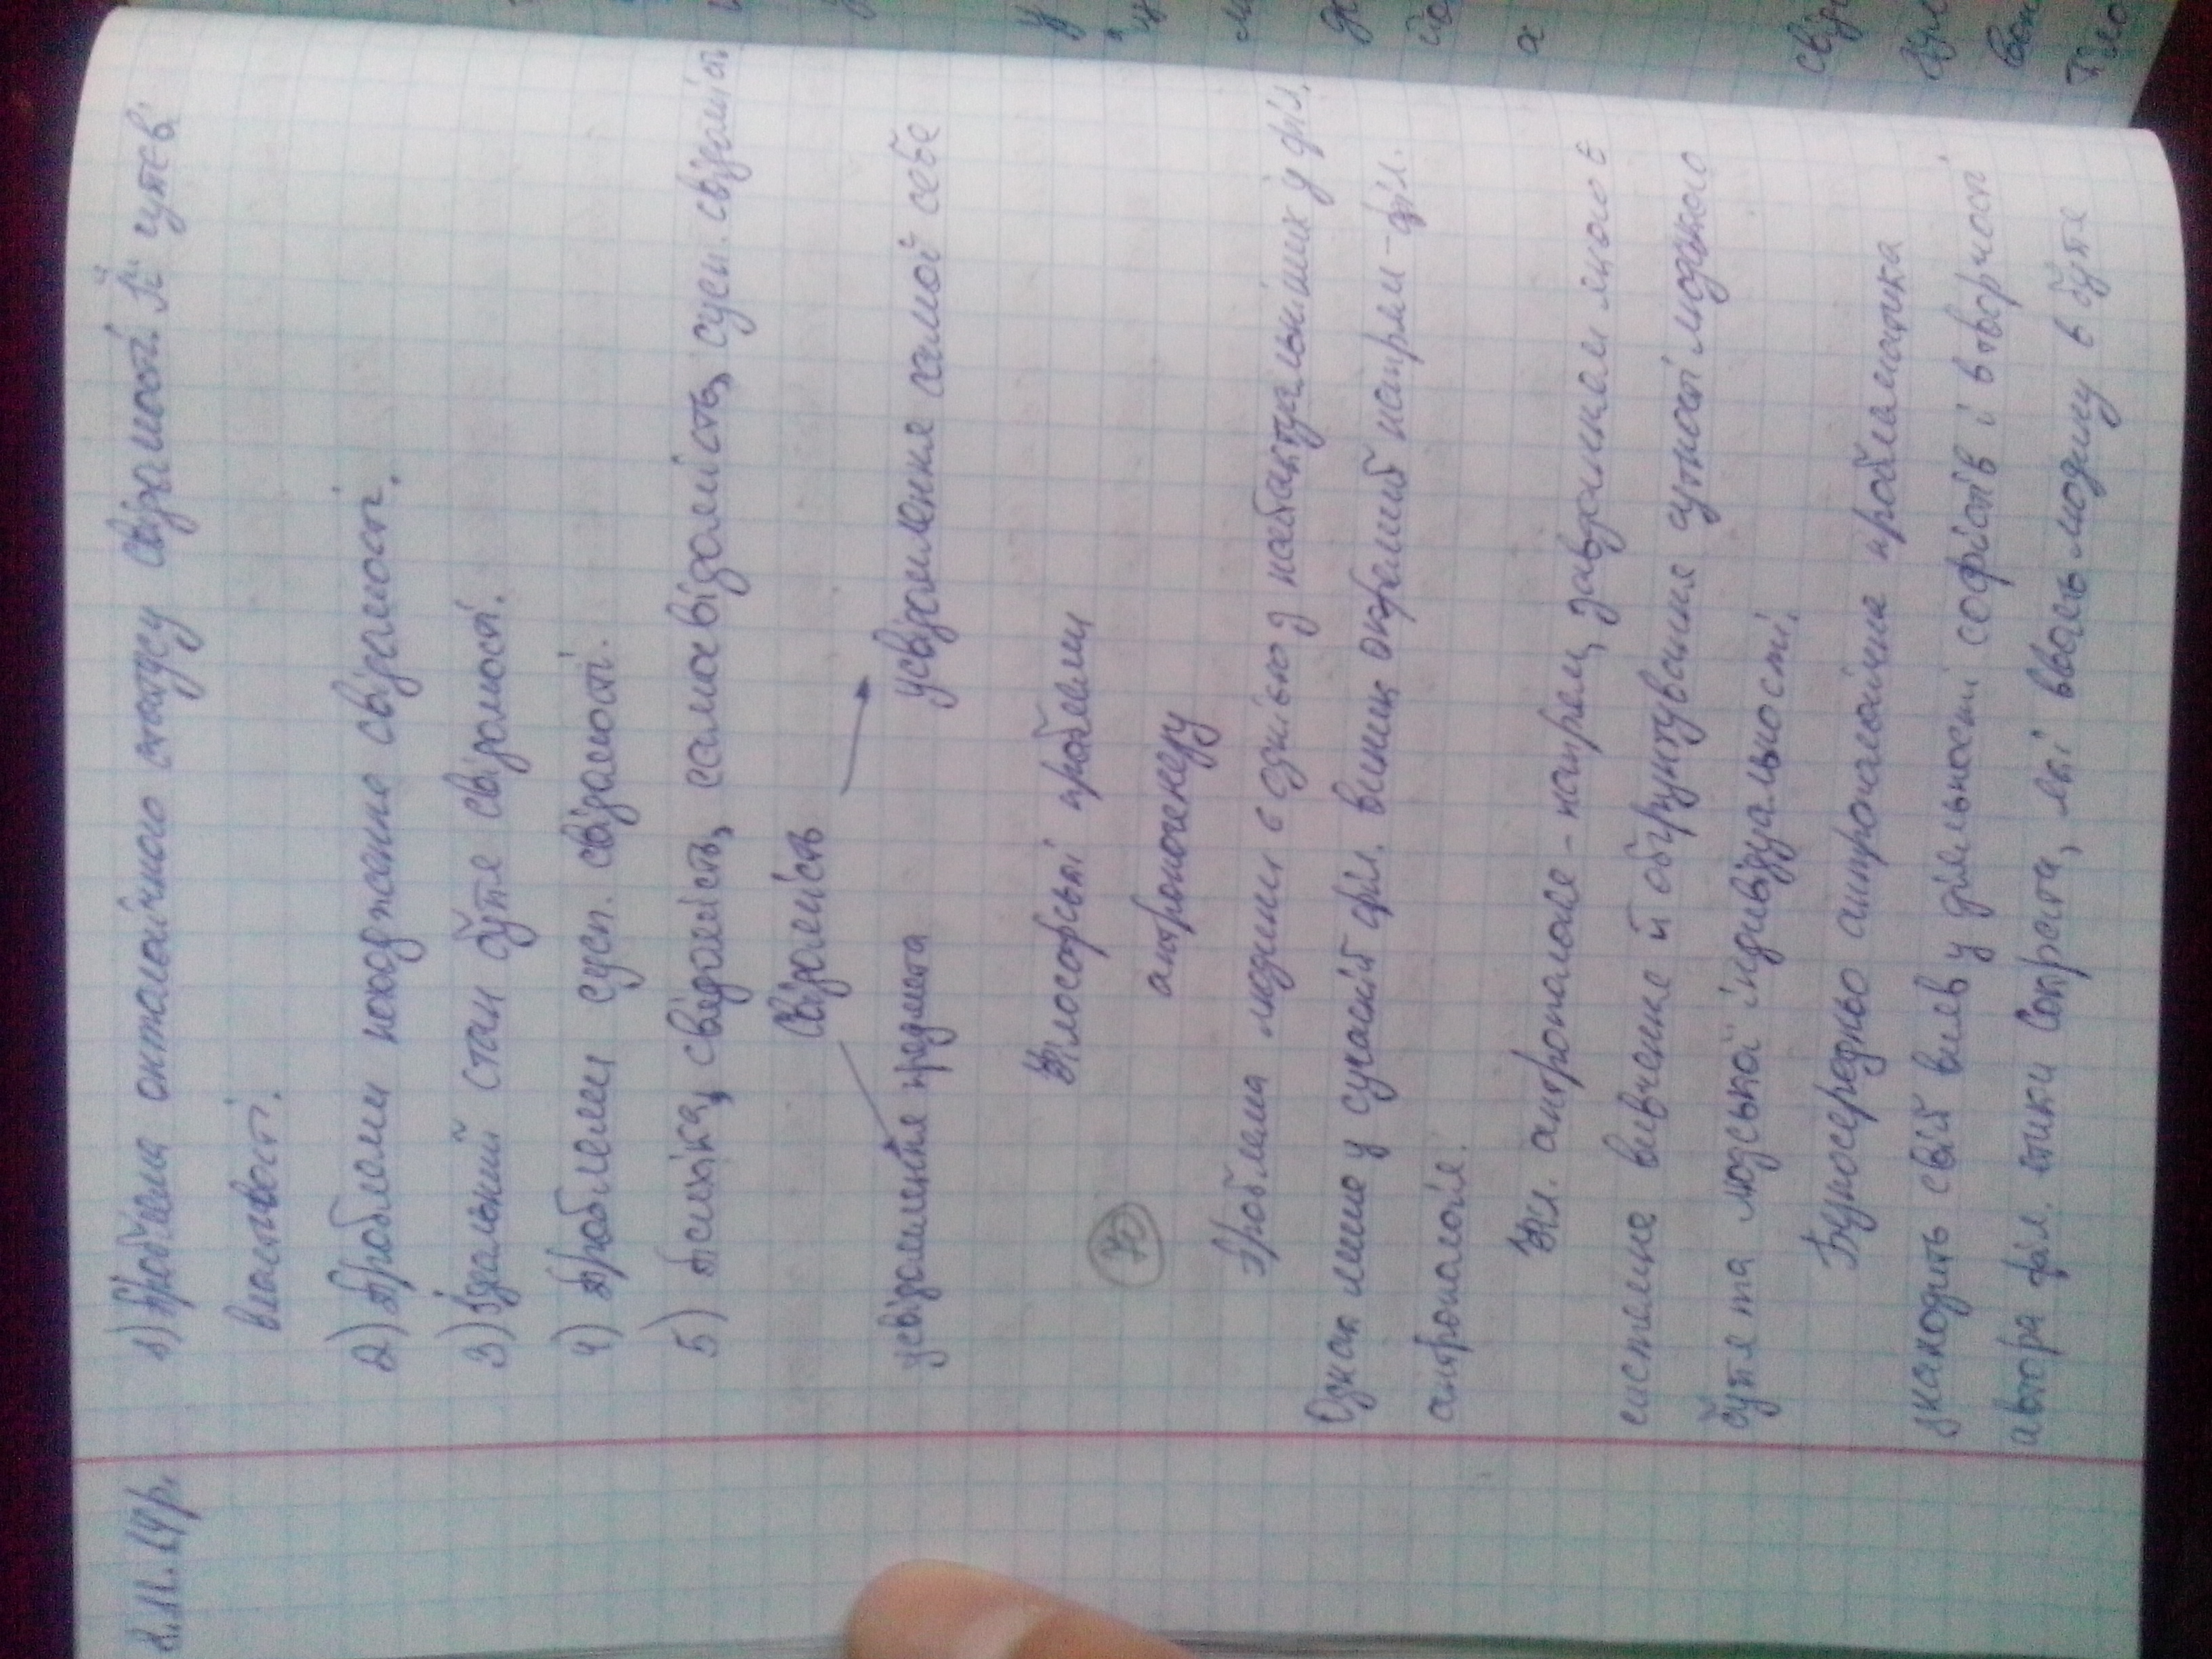 1) Проблема онтологічного статусу свідомості. Її суттєві
властивості.
2) Проблеми походження свідомості.
3) Ідеальний стан буття свідомості.
4) Проблеми сусп. свідомості.
5) Психіка, свідомість, самосвідомість, сусп. свідомість
Свідомість
усвідомлення предмета усвідомлення самої себе
Філософські проблеми
антропогенезу
Проблема людини є однією з найактуальніших у філ.
Однак лише у сучасній філ. виник окремий напрям - філ.
антропологія.
Філ. антропологія - напрям, завданням якого є
системне вивчення й обґрунтування сутності людського
буття та людської індивідуальності.
Безпосередньо антропологічна проблематика
знаходить свій вияв у діяльності софістів і в творчості
автора філ. етики Сократа, які людину в буття